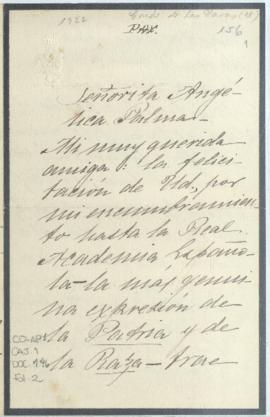 1922
Conde de las Navas (18)
Pax.
156
1
Señorita Angé-
lica Palma-
Mi muy querida
amiga: la felici-
tación de Ud, por
mi encumbramien-
to hasta la Real
Academia Españo-
la-la más genui-
na expresión de
la Patria y de
la Raza-trae
CO-AP1
CAJ.1
FOL-2